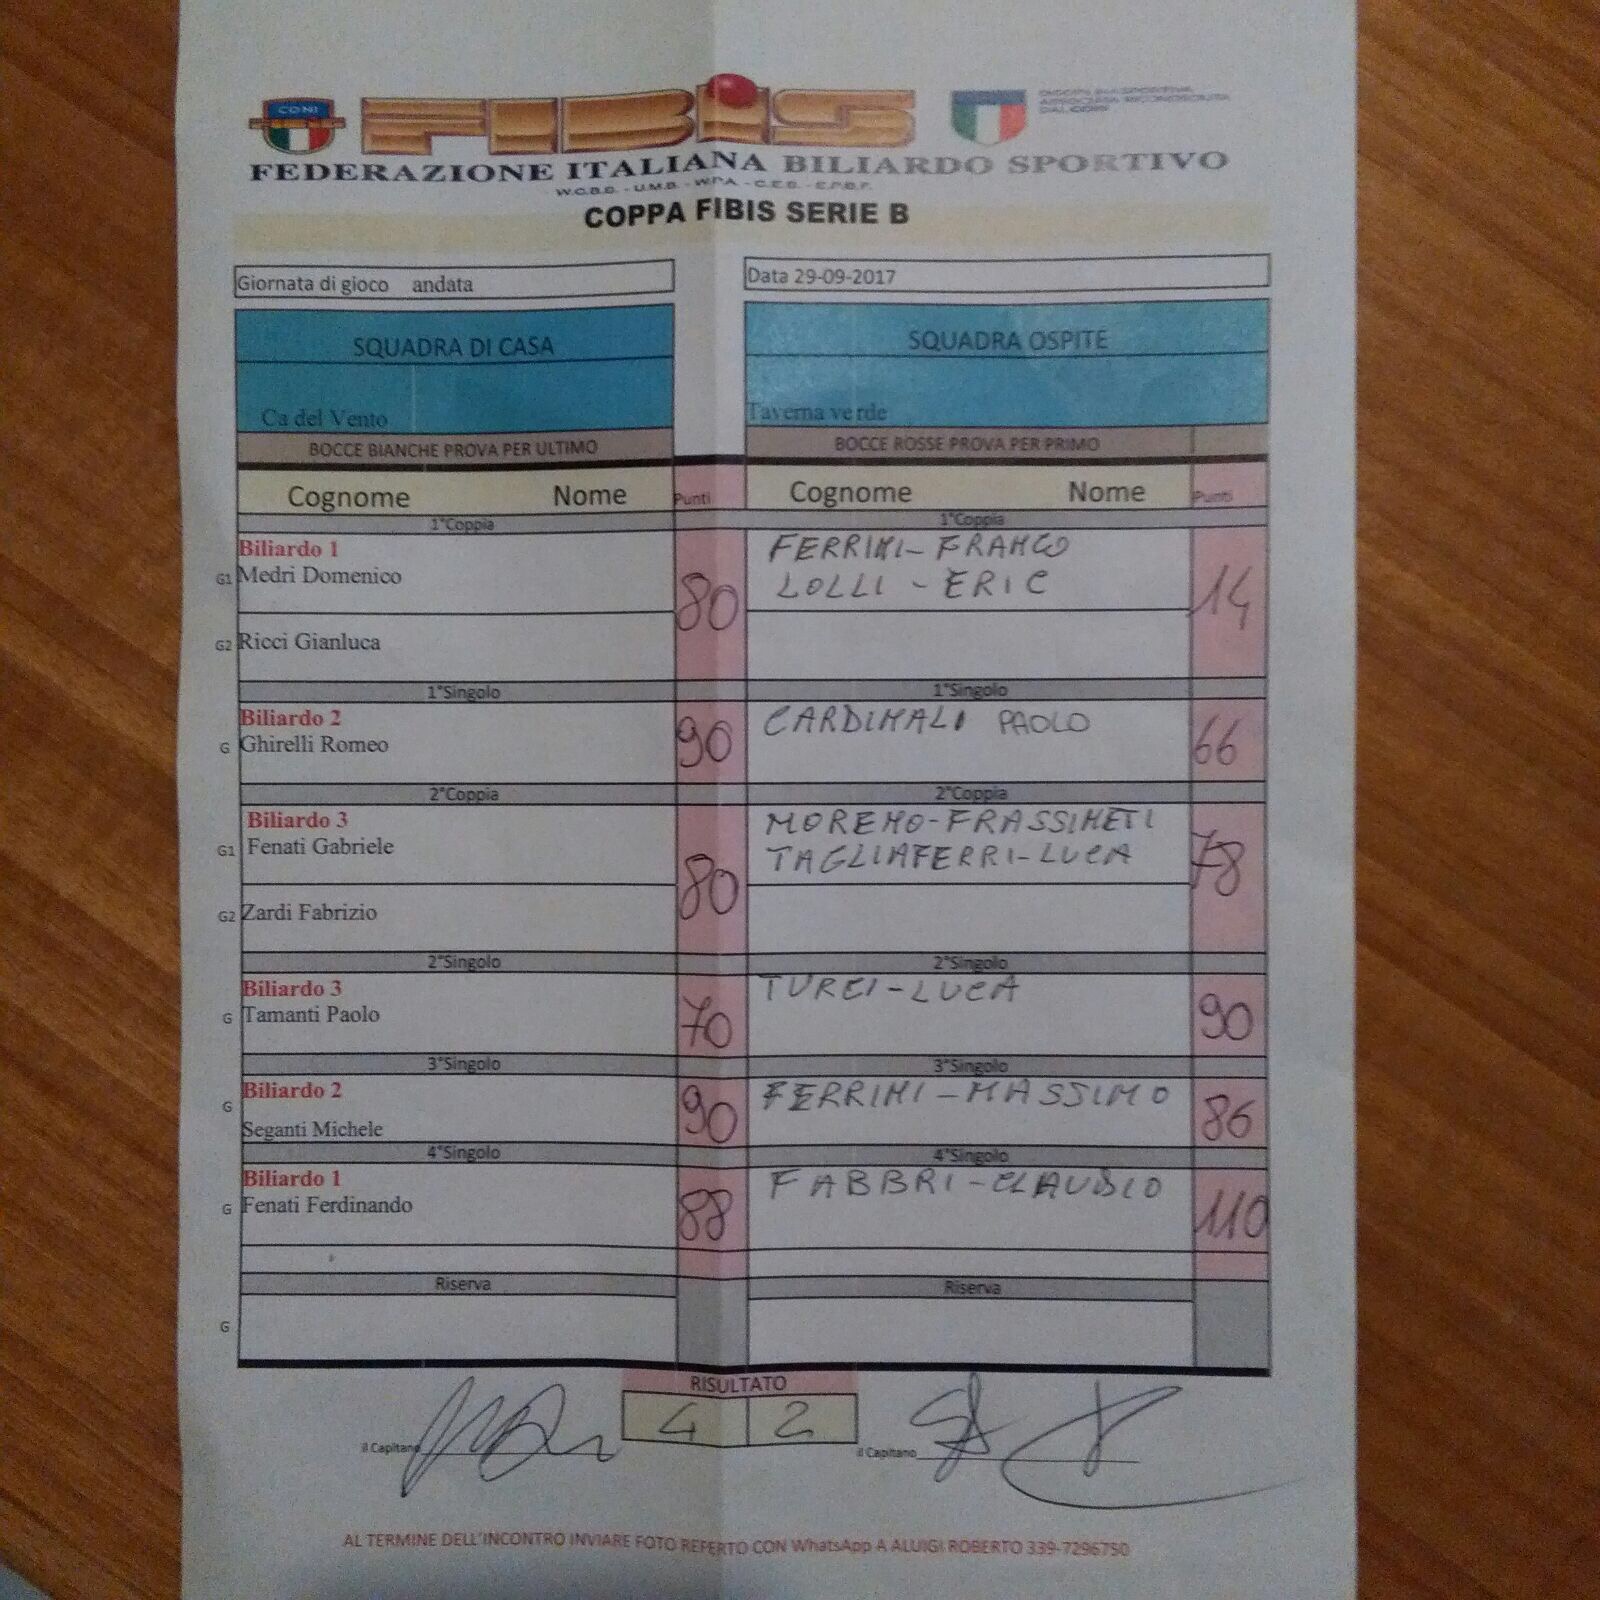 CONI FIBiS
FEDERAZIONE ITALIANA BILIARDO SPORTIVO
W.C.B.S. - U.M.B. - W.P.A. - C.E.B. - E.P.B.F.
COPPA FIBIS SERIE B
Giornata di gioco andata Data 29-09-2017
SQUADRA DI CASA SQUADRA OSPITE
Ca del Vento Taverna verde
BOCCE BIANCHE PROVA PER ULTIMO BOCCE ROSSE PROVA PER PRIMO
Cognome Nome Punti Cognome Nome Punti
1°Coppia 1°Coppia
Biliardo 1 FERRINI - FRANCO
G1 Medri Domenico 80 LOLLI - ERIC 14
G2 Ricci Gianluca
1°Singolo 1°Singolo
Biliardo 2 CARDINALI PAOLO
G Ghirelli Romeo 90 66
2°Coppia 2°Coppia
Biliardo 3 MORENO-FRASSINETI
G1 Fenati Gabriele 80 TAGLIAFERRI-LUCA 78
G2 Zardi Fabrizio
2°Singolo 2°Singolo
Biliardo 3 TURCI-LUCA
G Tamanti Paolo 70 90
3°Singolo 3°Singolo
Biliardo 2 FERRINI - MASSIMO
G Seganti Michele 90 86
4°Singolo 4°Singolo
Biliardo 1 FABBRI - CLAUDIO
G Fenati Ferdinando 88 110
Riserva Riserva
G
RISULTATO
4 2
il Capitano il Capitano
AL TERMINE DELL'INCONTRO INVIARE FOTO REFERTO CON WhatsApp A ALUIGI ROBERTO 339-7296750